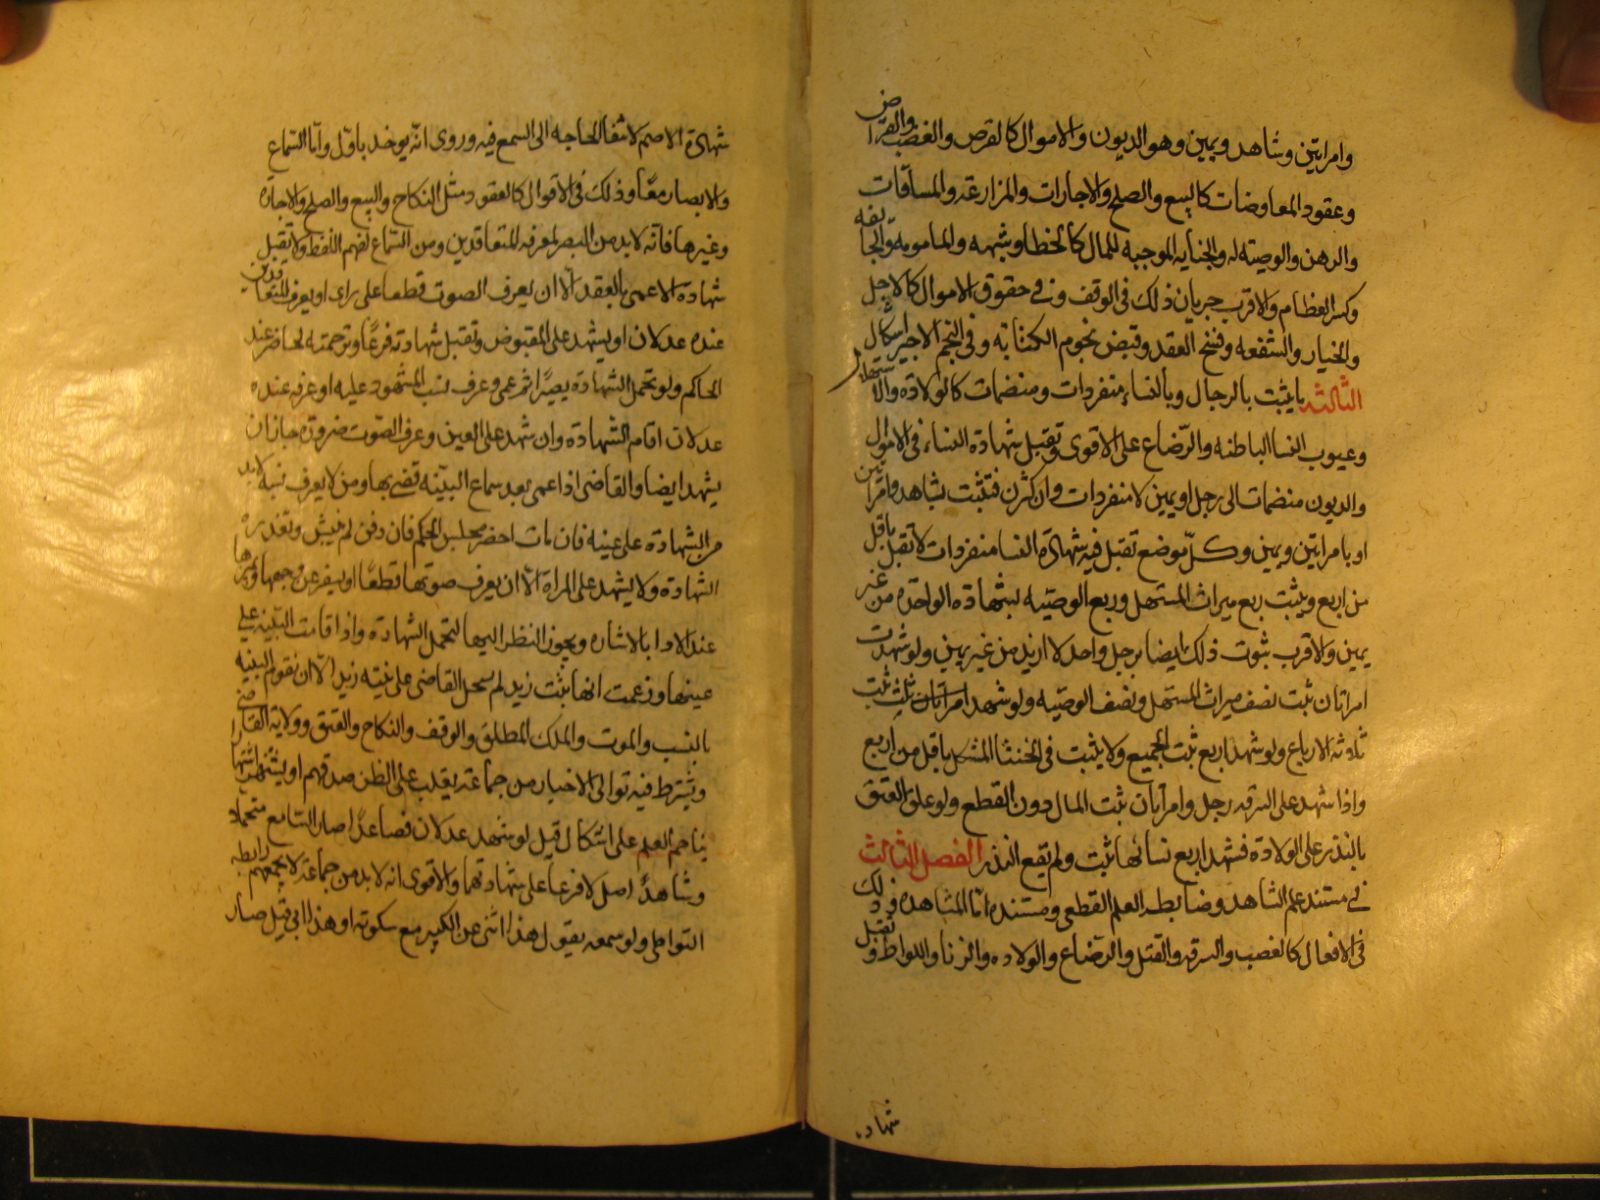 وامراتين وشاهد ويمين وهو الديون والاموال كالقرض والغصب والقراض
وعقود المعاوضات كالبيع والصلح والاجارات والمزارعة والمساقات
والرهن والوصيته له والجنايه الموجبه للمال كالخطا وشبهه والمامومه والجايفه
وكسر العظام والاقرب جريان ذلك فى الوقف وفى حقوق الاموال كالاجل
والخيار والشفعه وفسخ العقد وقبض نجوم الكتابه وفى النجم الاخير اشكال
الثالثه ما يثبت بالرجال وبالنساء منفردات ومنضمات كالولادة والاستهلال
وعيوب النسا الباطنه والرضاع على الاقوى وتقبل شهادة النساء فى الاموال
والديون منضمات الى رجل او يمين لا منفردات وان كثرن فتثبت بشاهد وامراتين
او بامراتين ويمين وكل موضع تقبل فيه شهادة النسا منفردات لا تقبل باقل
من اربع ويثبت ربع ميراث المستهل وربع الوصيه بشهادة الواحده من غير
يمين والاقرب ثبوت ذلك ايضا برجل واحد لا ازيد من غير يمين ولو شهدت
امراتان ثبت نصف ميراث المستهل ونصف الوصيه ولو شهد امراتان ثلث ثبت
ثلاثه الارباع ولو شهد اربع ثبت الجميع ولا يثبت فى الخنثا المشكل باقل من اربع
واذا شهد على السرقه رجل وامراتان ثبت المال دون القطع ولو علق العتق
بالنذر على الولادة فشهد اربع نسا بها ثبت ولم يقع النذر الفصل الثالث
فى مستند علم الشاهد وضابطه العلم القطعى ومستنده اما المشاهده وذلك
فى الافعال كالغصب والسرقه والقتل والرضاع والولاده والزنا واللواط وتقبل
شهاده
شهادة الاصم لانتفا الحاجه الى السمع فيه وروى انه يوخد باول واما السماع
والابصار معا وذلك فى الاقوال كالعقود مثل النكاح والبيع والصلح والاجارة
وغيرها فانه لا بد من البصر لمعرفه المتعاقدين ومن السماع لفهم اللفظ ولا تقبل
شهادة الاعمى بالعقد الا ان يعرف الصوت قطعا على راى او يعرف المتعاقدين
عنده عدلان او يشهد على المقبوض وتقبل شهادته فرعا وترجمته لحاضر عند
الحاكم ولو تحمل الشهادة بصيرا ثم عمى وعرف نسب المشهود عليه او عرفه عنده
عدلان اقام الشهادة وان شهد على العين وعرف الصوت ضرورة جاز ان
يشهد ايضا والقاضى اذا عمى بعد سماع البينه قضى بها ومن لا يعرف نسبه لا بد
من الشهادة على عينه فان مات احضر مجلس الحكم فان دفن لم ينبش وتعذره
الشهادة ولا يشهد على المراة الا ان يعرف صوتها قطعا او يسفر عن وجهها
عند الادا بالاشاره ويجوز النظر اليها لتحمل الشهادة واذا قامت البينه على
عينها وزعمت انها بنت زيد لم يسجل القاضى على بنته زيد الا ان تقوم البينه
بالنسب والموت والملك المطلق والوقف والنكاح والعتق وولاية القاضى
ويشترط فيه توالى الاخبار من جماعة يغلب على الظن صدقهم او يشتهر اشتهارا
يتاخم العلم على اشكال قيل لو شهد عدلان فصاعدا صار السامع متحملا
وشاهد اصل لا فرعا على شهادتهما والاقوى انه لا بد من جماعة لا يجمعهم رابطه
التواطى ولو سمعه يقول هذا ابنى عن الكبير مع سكوته او هذا ابى قيل صار